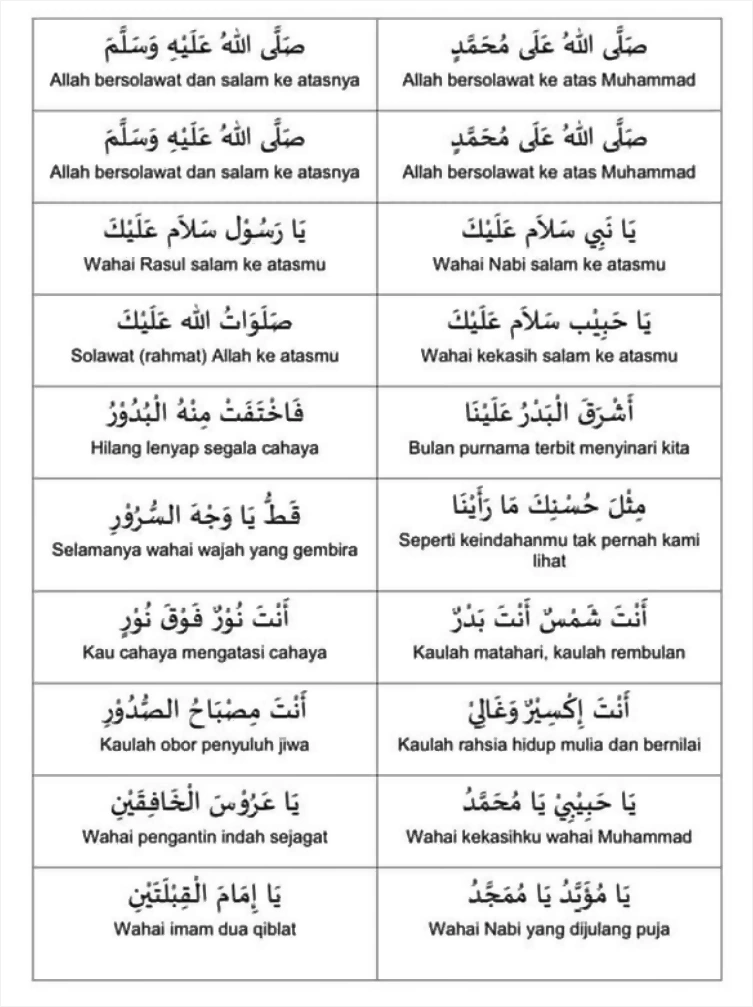 صَلَّى اللهُ عَلَى مُحَمَّدٍ
Allah bersolawat ke atas Muhammad
صَلَّى اللهُ عَلَيْهِ وَسَلَّمَ
Allah bersolawat dan salam ke atasnya
صَلَّى اللهُ عَلَى مُحَمَّدٍ
Allah bersolawat ke atas Muhammad
صَلَّى اللهُ عَلَيْهِ وَسَلَّمَ
Allah bersolawat dan salam ke atasnya
يَا نَبِي سَلاَم عَلَيْكَ
Wahai Nabi salam ke atasmu
يَا رَسُوْل سَلاَم عَلَيْكَ
Wahai Rasul salam ke atasmu
يَا حَبِيْب سَلاَم عَلَيْكَ
Wahai kekasih salam ke atasmu
صَلَوَاتُ الله عَلَيْكَ
Solawat (rahmat) Allah ke atasmu
أَشْرَقَ الْبَدْرُ عَلَيْنَا
Bulan purnama terbit menyinari kita
فَاخْتَفَتْ مِنْهُ الْبُدُوْرُ
Hilang lenyap segala cahaya
مِثْلَ حُسْنِكَ مَا رَأَيْنَا
Seperti keindahanmu tak pernah kami
lihat
قَطُّ يَا وَجْهَ السُّرُوْرِ
Selamanya wahai wajah yang gembira
أَنْتَ شَمْسٌ أَنْتَ بَدْرٌ
Kaulah matahari, kaulah rembulan
أَنْتَ نُوْرٌ فَوْقَ نُوْرٍ
Kau cahaya mengatasi cahaya
أَنْتَ إِكْسِيْرٌ وَغَالِيْ
Kaulah rahsia hidup mulia dan bernilai
أَنْتَ مِصْبَاحُ الصُّدُوْرِ
Kaulah obor penyuluh jiwa
يَا حَبِيْبِيْ يَا مُحَمَّدُ
Wahai kekasihku wahai Muhammad
يَا عَرُوْسَ الْخَافِقَيْنِ
Wahai pengantin indah sejagat
يَا مُؤَيَّدُ يَا مُمَجَّدُ
Wahai Nabi yang dijulang puja
يَا إِمَامَ الْقِبْلَتَيْنِ
Wahai imam dua qiblat